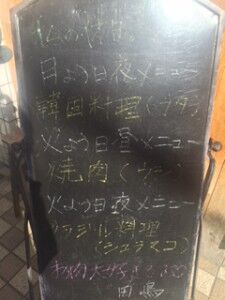 日よう日夜メニュー
韓国料理(ブタ)
火よう日昼メニュー
焼肉(ウシ)
火よう日夜メニュー
ブラジル料理
(シュラスコ)
お肉大好き
田嶋